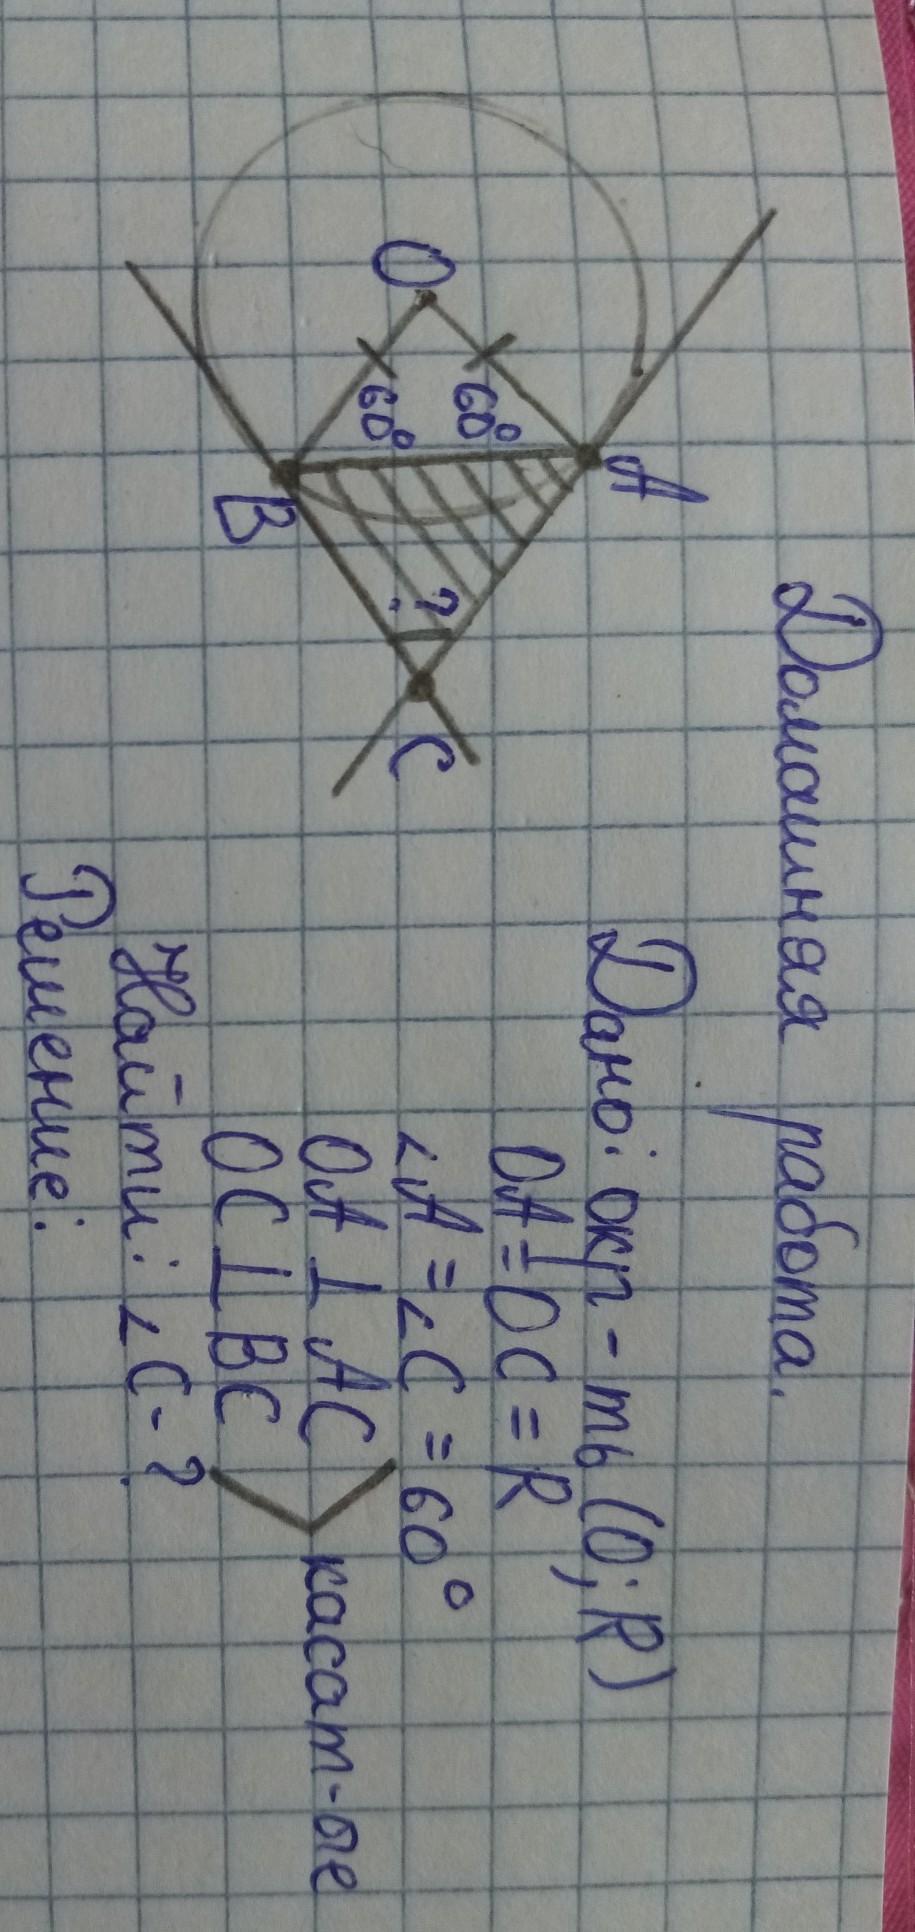 Домашняя работа.
Дано: окр-ть (O; R)
OA=OC=R
∠A=∠C=60°
OA⊥AC
OC⊥BC
касат-ые
Найти: ∠C-?
Решение:
A
O
60°
60°
?
C
B